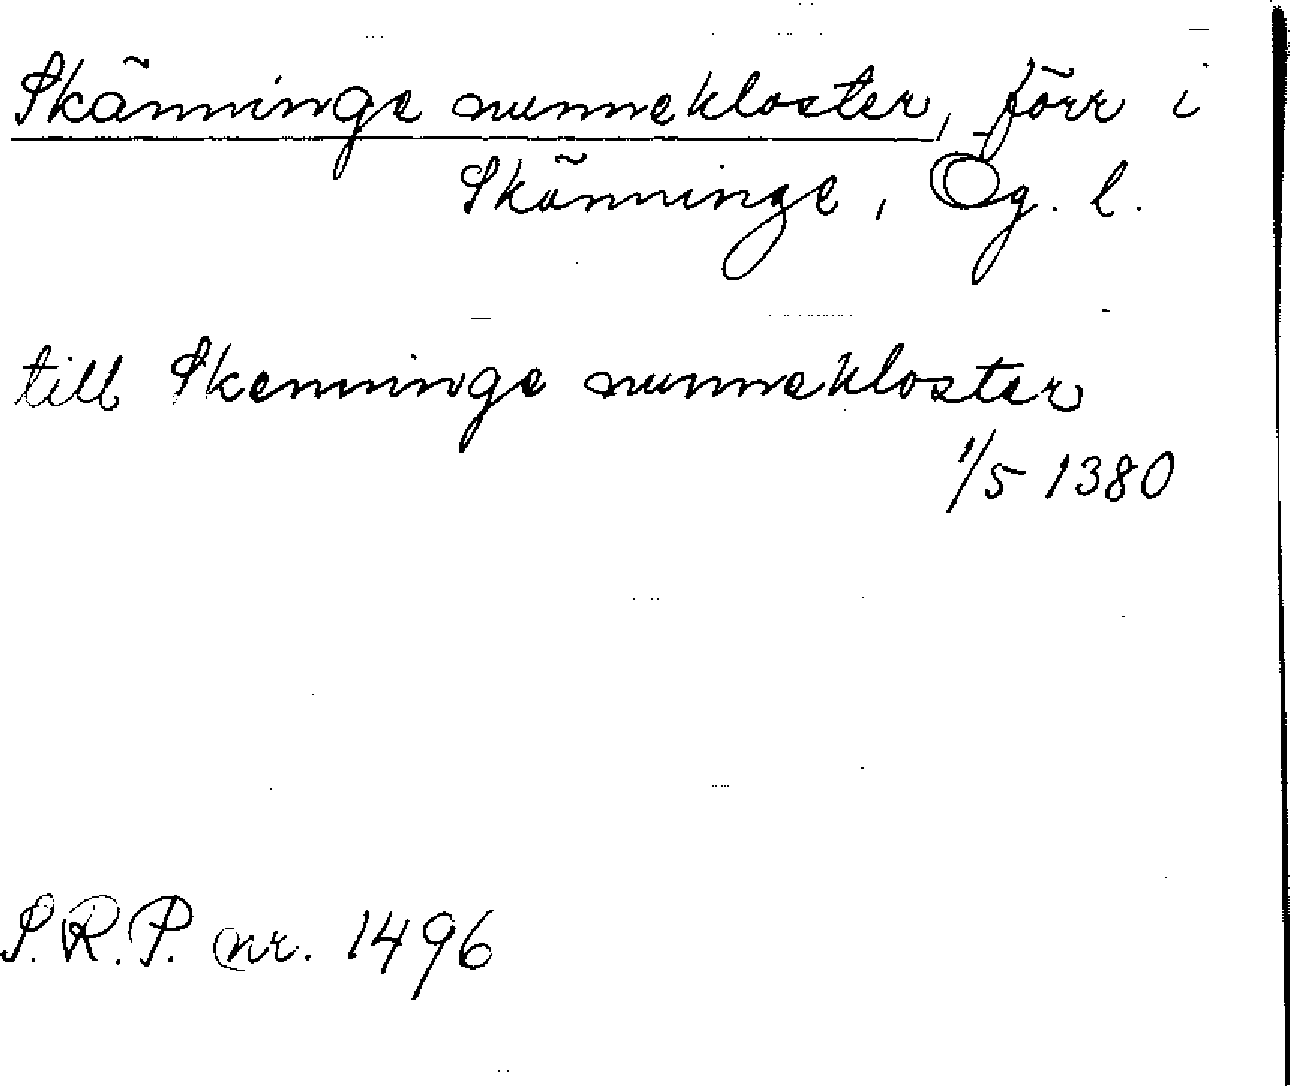 Skänninge nunnekloster, förr i
Skänninge, Ög. l.
till Skenninge nunnekloster
1/5 1380
S.R.P. nr. 1496